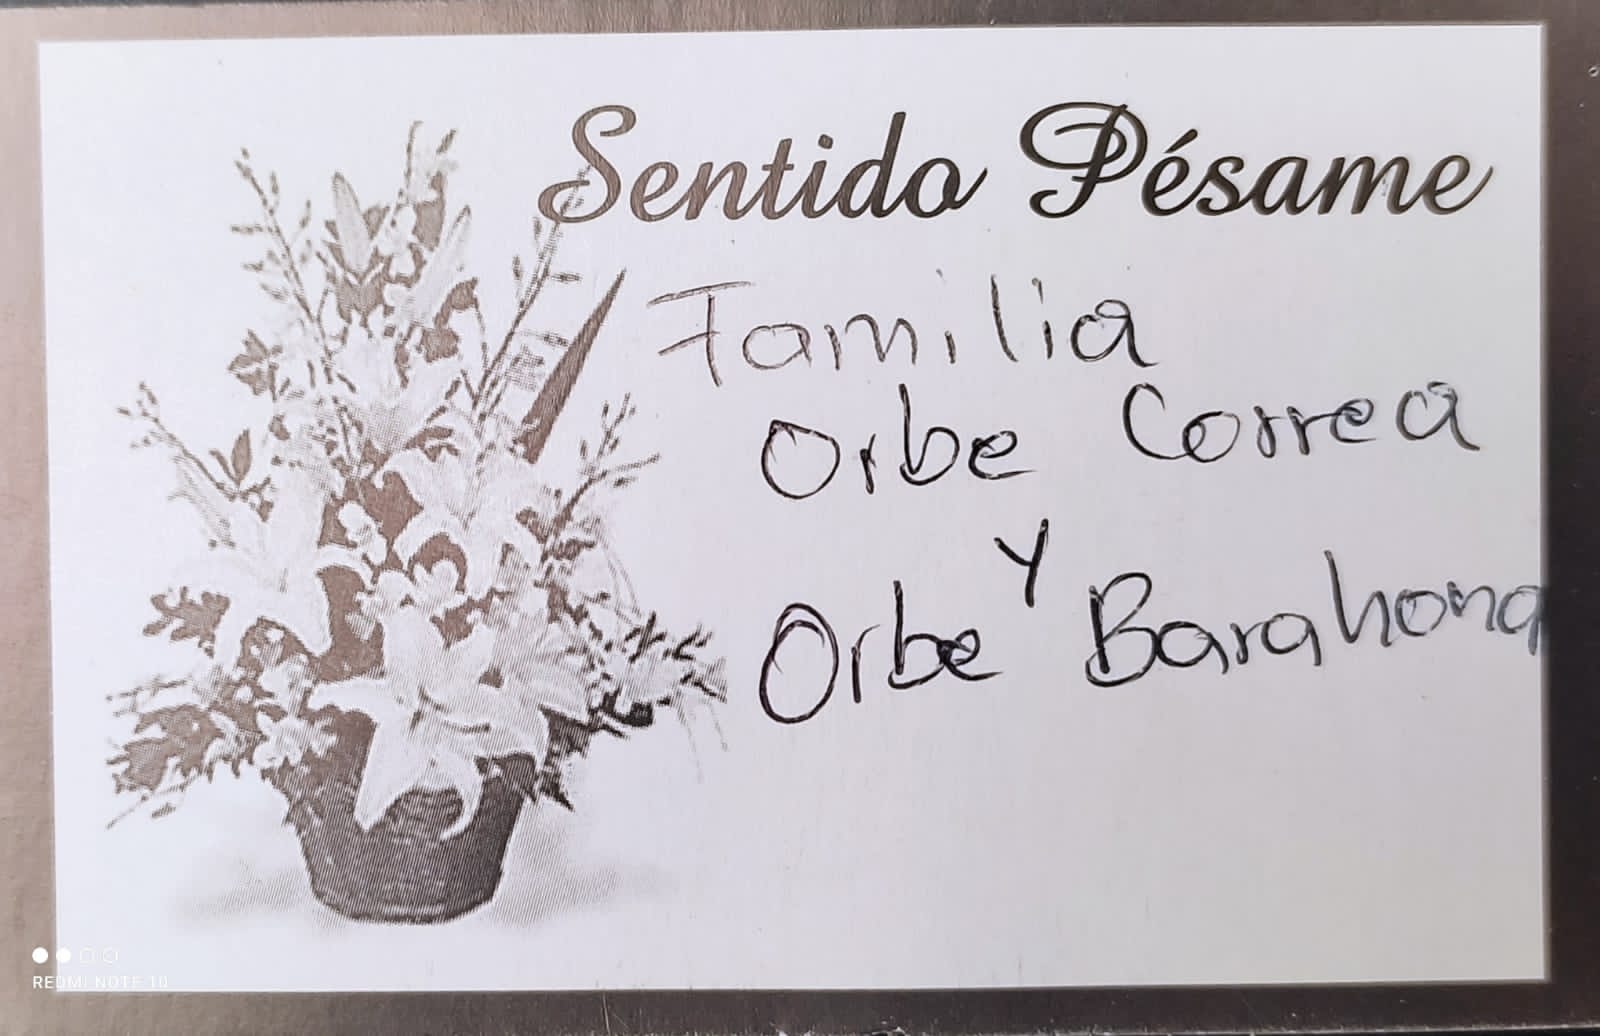 Sentido Pésame
Familia
Orbe Correa
y
Orbe Barahona
REDMI NOTE 10